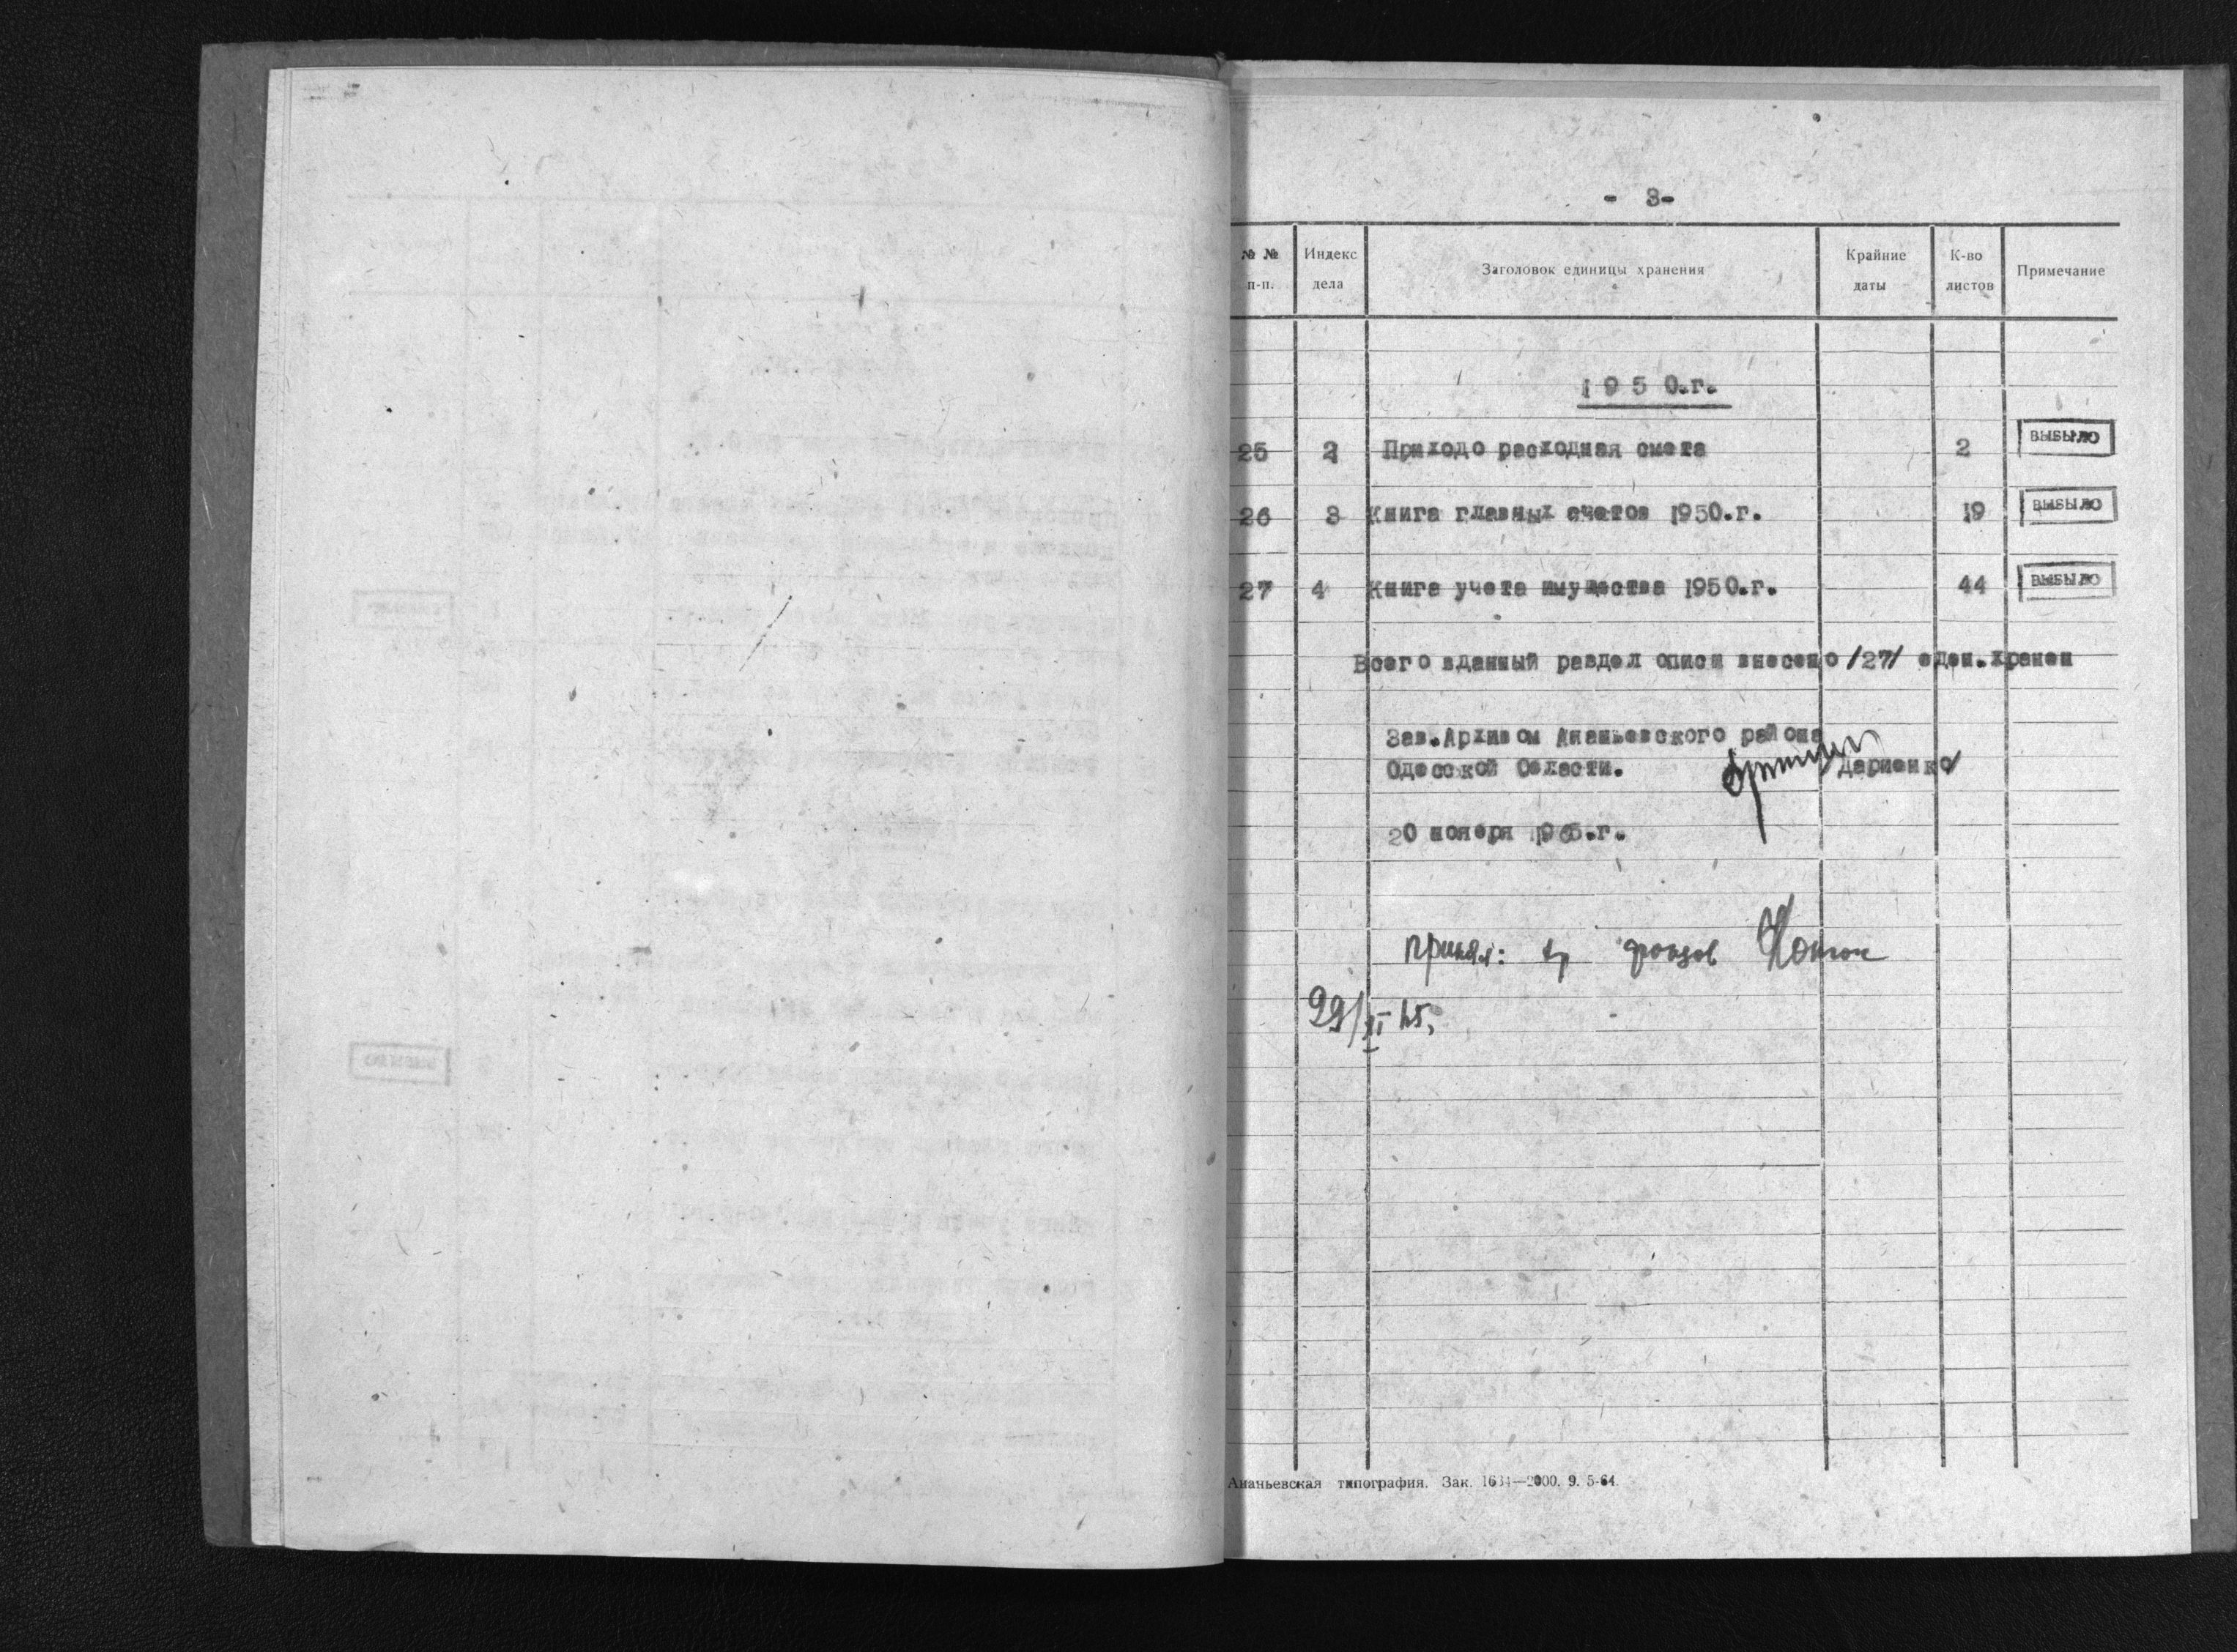 - 3-
№ № п-п. Индекс дела Заголовок единицы хранения Крайние даты К-во листов Примечание
1950.г.
25 2 Приходо расходная смета 2 ВЫБЫЛО
26 3 Книга главных счетов 1950.г. 19 ВЫБЫЛО
27 4 Книга учета имущества 1950.г. 44 ВЫБЫЛО
Всего вданный раздел описи внесено /27/ еден.хранен
Зав.Архивом Ананьевского района
Одесской Области. /Дариенко/
20 ноября 1965.г.
принял:
Ананьевская типография. Зак. 1634—2000. 9. 5-64.